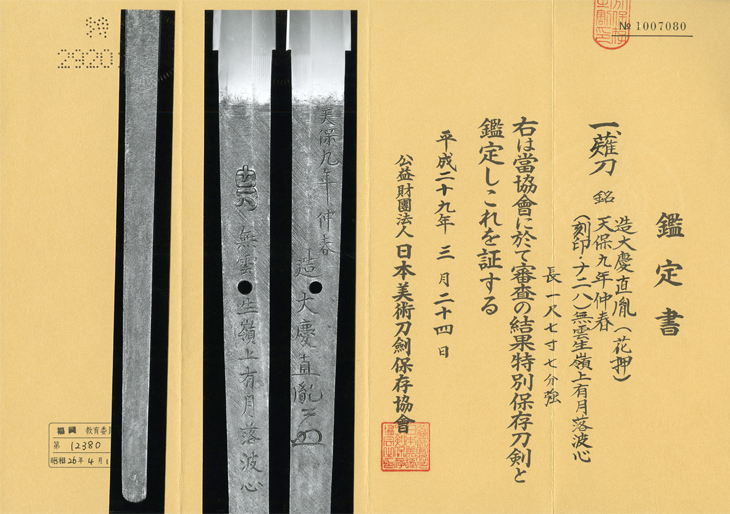 № 1007080
鑑定書
一、薙刀 銘
造大慶直胤(花押)
天保九年仲春
(刻印・ナニハ)無雲生嶺上有月落波心
長一尺七寸七分強
右は當協會に於て審査の結果特別保存刀剣と
鑑定しこれを証する
平成二十九年 三月二十四日
公益財團法人日本美術刀劍保存協會
天保九年仲春
造大慶直胤
無雲生嶺上有月落波心
特
2920
福岡 教育委
第 12380
昭和26年4月1